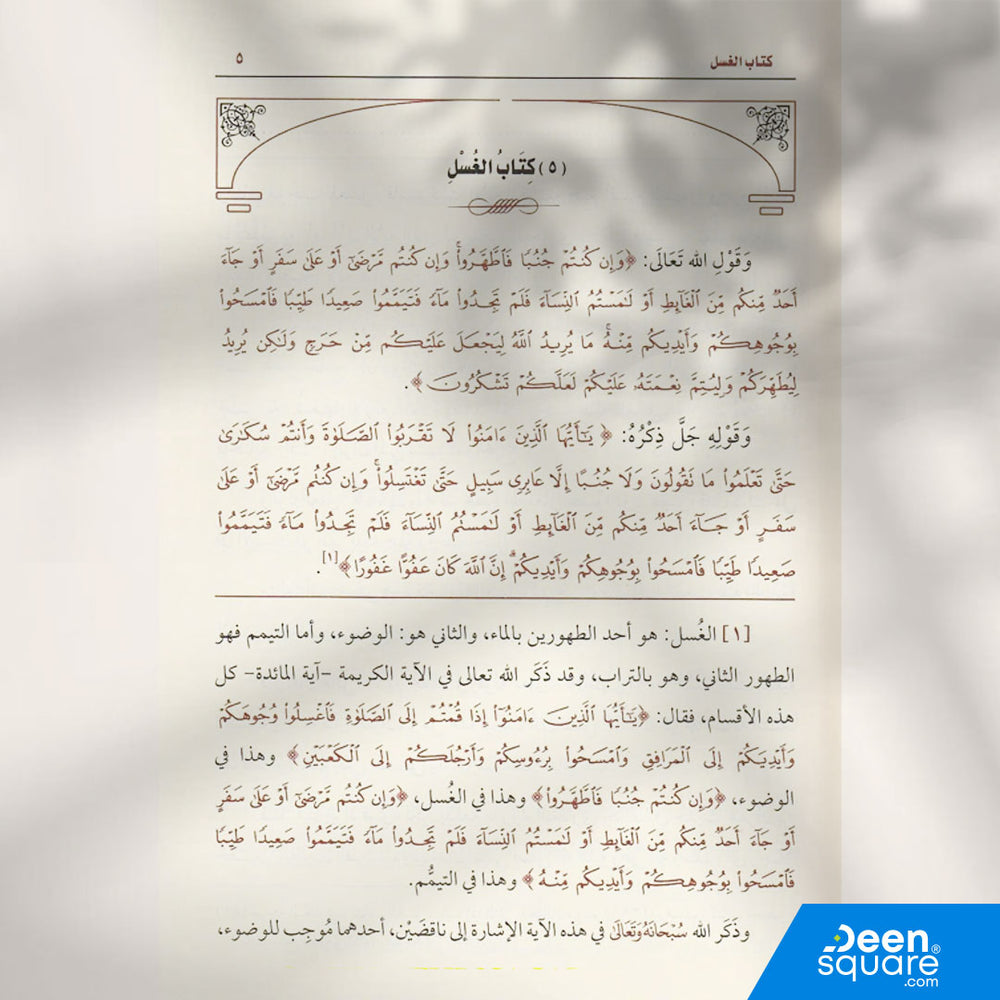 كتاب الغسل ٥
(٥) كِتَابُ الغُسْلِ
وَقَوْلِ الله تَعَالَى: ﴿وَإِن كُنتُمْ جُنُبًا فَٱطَّهَّرُوا۟ ۚ وَإِن كُنتُم مَّرْضَىٰٓ أَوْ عَلَىٰ سَفَرٍ أَوْ جَآءَ
أَحَدٌ مِّنكُم مِّنَ ٱلْغَآئِطِ أَوْ لَـٰمَسْتُمُ ٱلنِّسَآءَ فَلَمْ تَجِدُوا۟ مَآءً فَتَيَمَّمُوا۟ صَعِيدًا طَيِّبًا فَٱمْسَحُوا۟
بِوُجُوهِكُمْ وَأَيْدِيكُم مِّنْهُ ۚ مَا يُرِيدُ ٱللَّهُ لِيَجْعَلَ عَلَيْكُم مِّنْ حَرَجٍ وَلَـٰكِن يُرِيدُ
لِيُطَهِّرَكُمْ وَلِيُتِمَّ نِعْمَتَهُۥ عَلَيْكُمْ لَعَلَّكُمْ تَشْكُرُونَ﴾.
وَقَوْلِهِ جَلَّ ذِكْرُهُ: ﴿يَـٰٓأَيُّهَا ٱلَّذِينَ ءَامَنُوا۟ لَا تَقْرَبُوا۟ ٱلصَّلَوٰةَ وَأَنتُمْ سُكَـٰرَىٰ
حَتَّىٰ تَعْلَمُوا۟ مَا تَقُولُونَ وَلَا جُنُبًا إِلَّا عَابِرِى سَبِيلٍ حَتَّىٰ تَغْتَسِلُوا۟ ۚ وَإِن كُنتُم مَّرْضَىٰٓ أَوْ عَلَىٰ
سَفَرٍ أَوْ جَآءَ أَحَدٌ مِّنكُم مِّنَ ٱلْغَآئِطِ أَوْ لَـٰمَسْتُمُ ٱلنِّسَآءَ فَلَمْ تَجِدُوا۟ مَآءً فَتَيَمَّمُوا۟
صَعِيدًا طَيِّبًا فَٱمْسَحُوا۟ بِوُجُوهِكُمْ وَأَيْدِيكُمْ ۗ إِنَّ ٱللَّهَ كَانَ عَفُوًّا غَفُورًا﴾[١].
[١] الغُسل: هو أحد الطهورين بالماء، والثاني هو: الوضوء، وأما التيمم فهو
الطهور الثاني، وهو بالتراب، وقد ذَكَر الله تعالى في الآية الكريمة -آية المائدة- كل
هذه الأقسام، فقال: ﴿يَـٰٓأَيُّهَا ٱلَّذِينَ ءَامَنُوٓا۟ إِذَا قُمْتُمْ إِلَى ٱلصَّلَوٰةِ فَٱغْسِلُوا۟ وُجُوهَكُمْ
وَأَيْدِيَكُمْ إِلَى ٱلْمَرَافِقِ وَٱمْسَحُوا۟ بِرُءُوسِكُمْ وَأَرْجُلَكُمْ إِلَى ٱلْكَعْبَيْنِ﴾ وهذا في
الوضوء، ﴿وَإِن كُنتُمْ جُنُبًا فَٱطَّهَّرُوا۟﴾ وهذا في الغُسل، ﴿وَإِن كُنتُم مَّرْضَىٰٓ أَوْ عَلَىٰ سَفَرٍ
أَوْ جَآءَ أَحَدٌ مِّنكُم مِّنَ ٱلْغَآئِطِ أَوْ لَـٰمَسْتُمُ ٱلنِّسَآءَ فَلَمْ تَجِدُوا۟ مَآءً فَتَيَمَّمُوا۟ صَعِيدًا طَيِّبًا
فَٱمْسَحُوا۟ بِوُجُوهِكُمْ وَأَيْدِيكُم مِّنْهُ﴾ وهذا في التيمُّم.
وذَكَر الله سُبْحَانَهُ وَتَعَالَى في هذه الآية الإشارة إلى ناقضَيْن، أحدهما مُوجِب للوضوء،
Deen®
square
.com